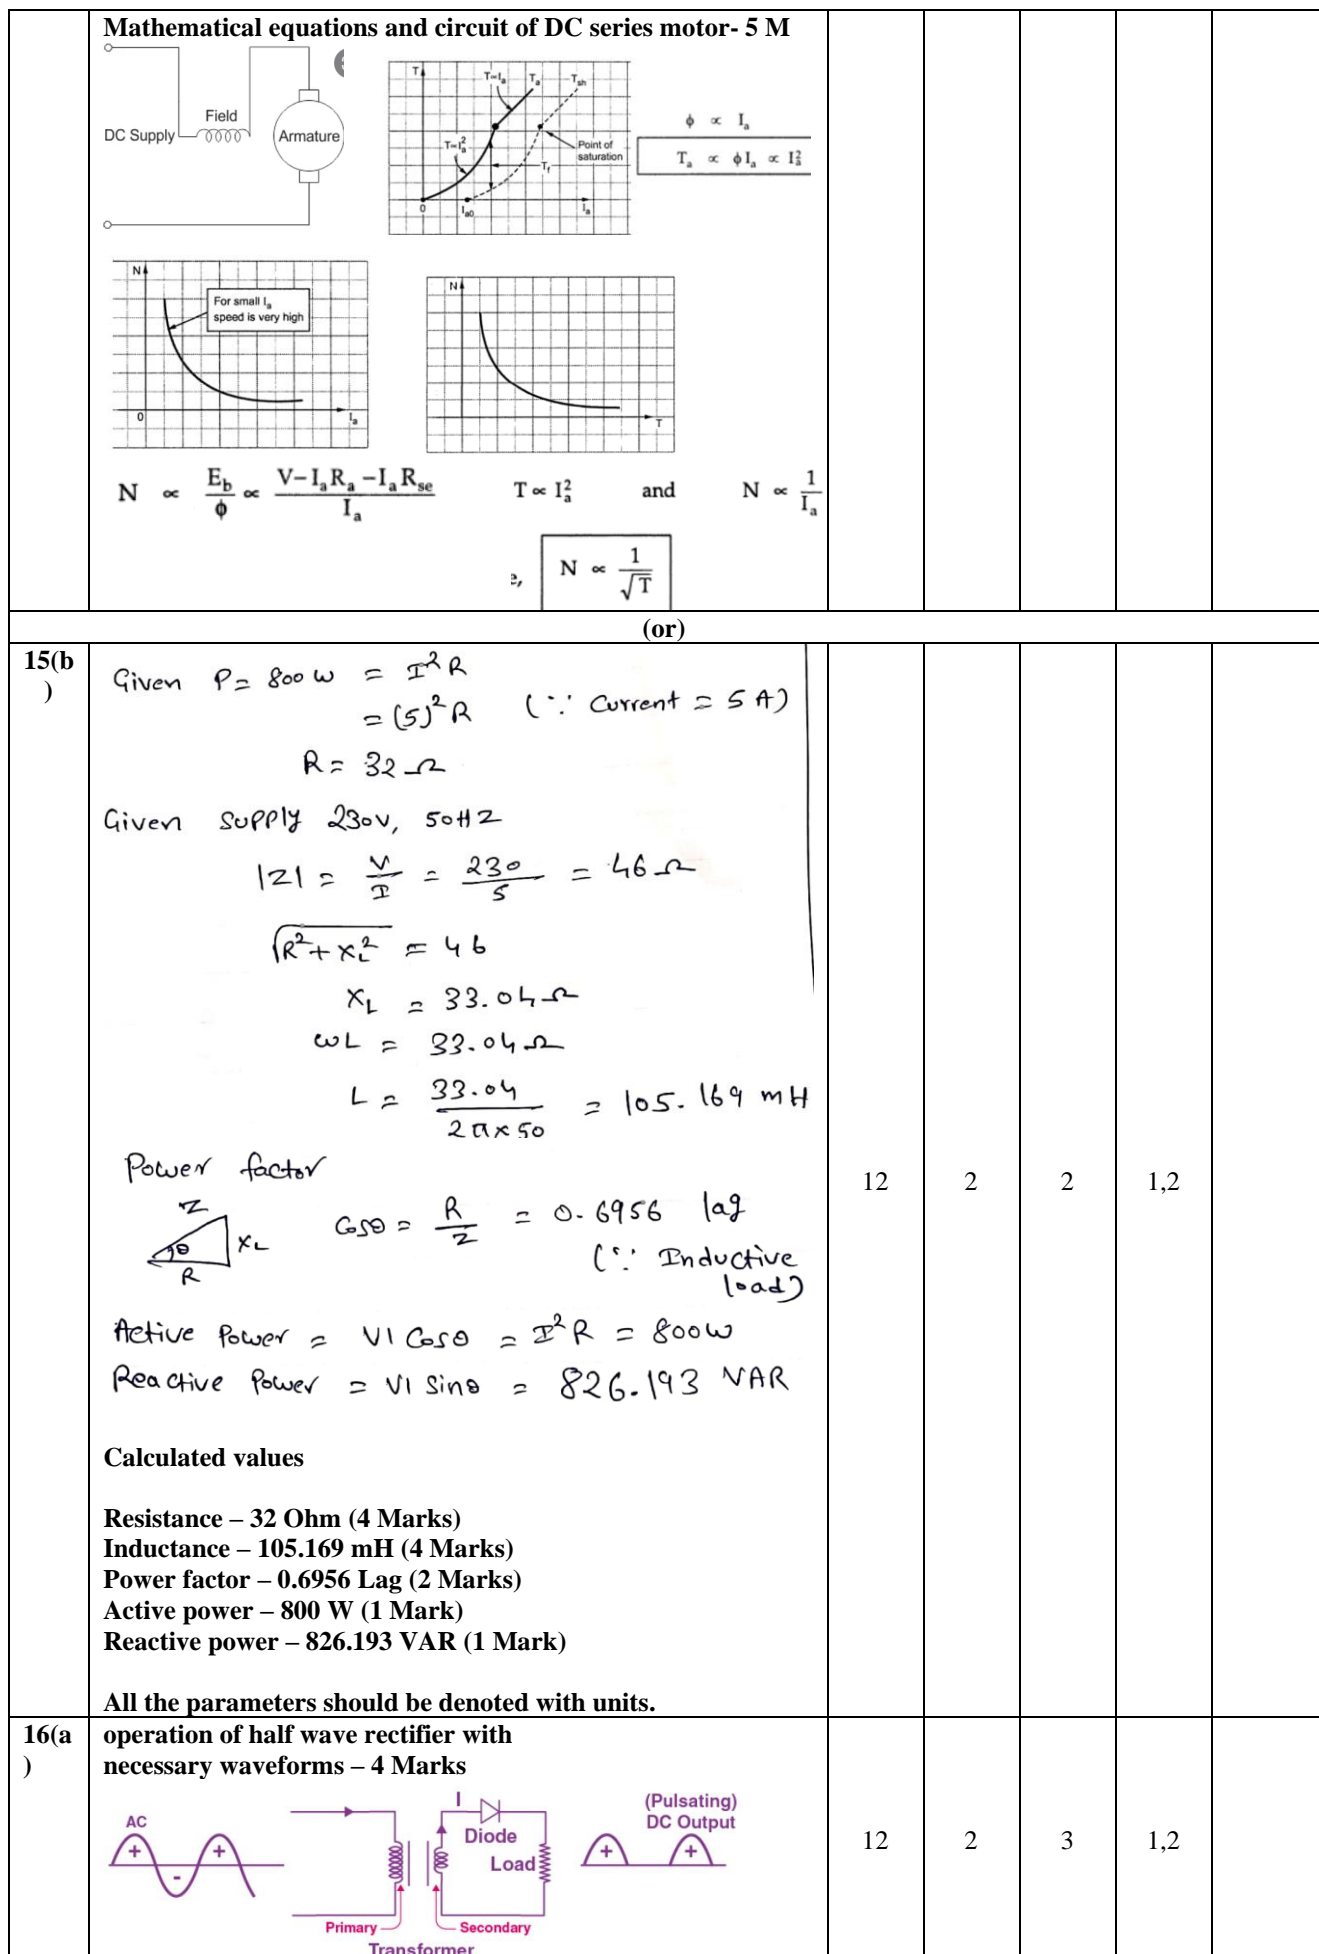 Mathematical equations and circuit of DC series motor- 5 M
DC Supply
Field
Armature
T
T∝Iₐ
Tₐ
Tₛₕ
T∝Iₐ²
Point of
saturation
T_f
0
Iₐ₀
Iₐ
ϕ ∝ Iₐ
Tₐ ∝ ϕ Iₐ ∝ Iₐ²
N
For small Iₐ
speed is very high
0
Iₐ
N
T
N ∝ E_b/ϕ ∝ (V− IₐRₐ − IₐRₛₑ)/Iₐ T ∝ Iₐ² and N ∝ 1/Iₐ
e, N ∝ 1/√T
(or)
15(b
)
Given P = 800 W = I² R
= (5)² R (∵ Current = 5 A)
R = 32 Ω
Given Supply 230V, 50HZ
|Z| = V/I = 230/5 = 46 Ω
√(R² + X_L²) = 46
X_L = 33.04 Ω
ωL = 33.04 Ω
L = 33.04/(2π×50) = 105.169 mH
Power factor
Z
θ
X_L
R
Cosθ = R/Z = 0.6956 lag
(∵ Inductive
load)
Active Power = VI Cosθ = I² R = 800W
Reactive Power = VI Sinθ = 826.193 VAR
Calculated values
Resistance – 32 Ohm (4 Marks)
Inductance – 105.169 mH (4 Marks)
Power factor – 0.6956 Lag (2 Marks)
Active power – 800 W (1 Mark)
Reactive power – 826.193 VAR (1 Mark)
All the parameters should be denoted with units.
12 2 2 1,2
16(a
)
operation of half wave rectifier with
necessary waveforms – 4 Marks
AC
+
-
+
I
Diode
Load
Primary
Secondary
Transformer
(Pulsating)
DC Output
+
+
12 2 3 1,2